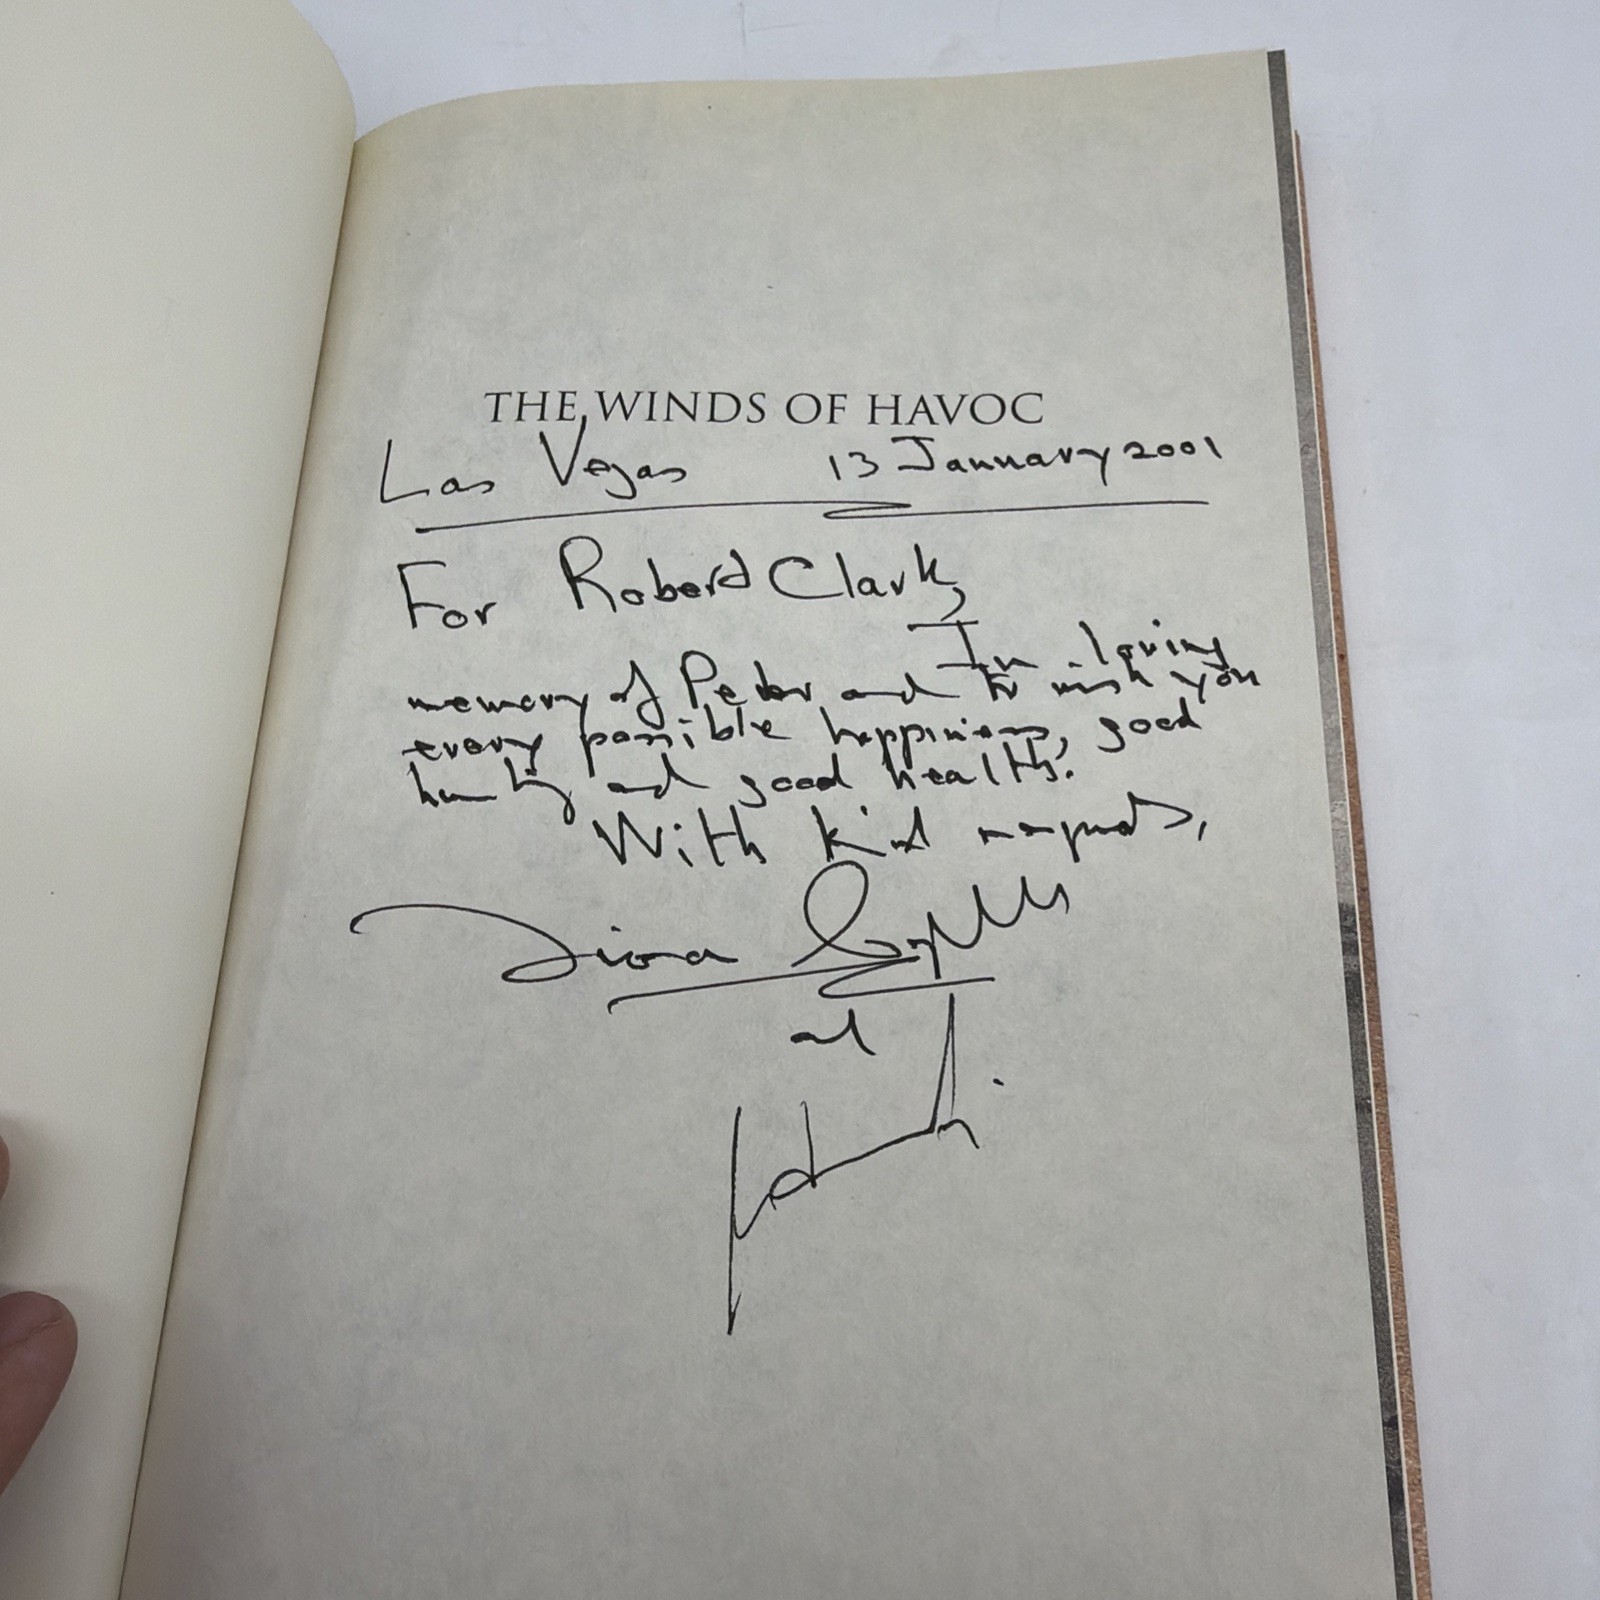 THE WINDS OF HAVOC
Las Vegas 13 January 2001
For Roberd Clark,
In loving
memory of Peter and to wish you
every possible happiness, good
hunting and good health.
With kind regards,
Fiona
and